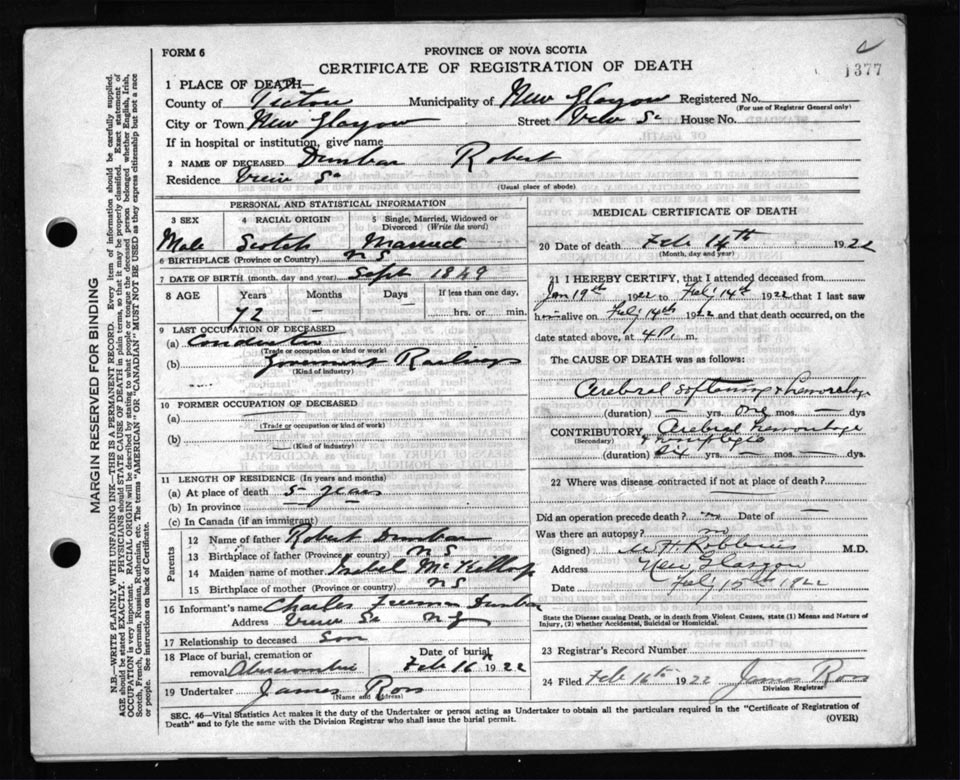 FORM 6
PROVINCE OF NOVA SCOTIA
CERTIFICATE OF REGISTRATION OF DEATH
1377
1 PLACE OF DEATH—
County of Pictou Municipality of New Glasgow Registered No.
(For use of Registrar General only)
City or Town New Glasgow Street View St House No.
If in hospital or institution, give name
2 NAME OF DECEASED Dunbar Robert
Residence View St
(Usual place of abode)
PERSONAL AND STATISTICAL INFORMATION
3 SEX 4 RACIAL ORIGIN 5 Single, Married, Widowed or Divorced (Write the word)
Male Scotch Married
6 BIRTHPLACE (Province or Country) N S
7 DATE OF BIRTH (month, day and year) Sept 1849
8 AGE Years Months Days If less than one day,
72 — — hrs. or min.
9 LAST OCCUPATION OF DECEASED
(a) Conductor
(Trade or occupation or kind or work)
(b) Government Railways
(Kind of industry)
10 FORMER OCCUPATION OF DECEASED
(a)
(Trade or occupation or kind of work)
(b)
(Kind of industry)
11 LENGTH OF RESIDENCE (In years and months)
(a) At place of death 5 years
(b) In province
(c) In Canada (if an immigrant)
Parents
12 Name of father Robert Dunbar
13 Birthplace of father (Province or country) N S
14 Maiden name of mother Isabel McKillop
15 Birthplace of mother (Province or country) N S
16 Informant's name Charles Freeman Dunbar
Address View St N G
17 Relationship to deceased Son
18 Place of burial, cremation or removal Abercrombie Date of burial Feb 16th 1922
19 Undertaker James Ross
(Name and Address)
MEDICAL CERTIFICATE OF DEATH
20 Date of death Feb 14th 1922
(Month, day and year)
21 I HEREBY CERTIFY, that I attended deceased from
Jan 19th 1922 to Feby 14th 1922 that I last saw
him alive on Feby 14th 1922 and that death occurred, on the
date stated above, at 4 P. m.
The CAUSE OF DEATH was as follows:
Cerebral softening & hemorrhage
(duration) — yrs. one mos. — dys
CONTRIBUTORY Cerebral hemorrhage
(Secondary) & hemiplegia
(duration) yrs. — mos. — dys.
22 Where was disease contracted if not at place of death?
Did an operation precede death? no Date of —
Was there an autopsy? no
(Signed) M.D.
Address New Glasgow
Date Feby 15th 1922
State the Disease causing Death, or in death from Violent Causes, state (1) Means and Nature of
Injury, (2) whether Accidental, Suicidal or Homicidal.
23 Registrar's Record Number
24 Filed Feb 16th 1922 James Ross
Division Registrar
SEC. 46—Vital Statistics Act makes it the duty of the Undertaker or person acting as Undertaker to obtain all the particulars required in the "Certificate of Registration of
Death" and to fyle the same with the Division Registrar who shall issue the burial permit.
(OVER)
MARGIN RESERVED FOR BINDING
N.B.—WRITE PLAINLY WITH UNFADING INK—THIS IS A PERMANENT RECORD. Every item of information should be carefully supplied.
AGE should be stated EXACTLY. PHYSICIANS should STATE CAUSE OF DEATH in plain terms, so that it may be properly classified. Exact statement of
OCCUPATION is very important. RACIAL ORIGIN will be described by stating to what people or tongue the deceased person belonged whether English, Irish,
Scotch, French, German, Russian, Ruthenian, etc. The terms "AMERICAN" OR "CANADIAN" MUST NOT BE USED as they express citizenship but not a race
or people. See instructions on back of Certificate.